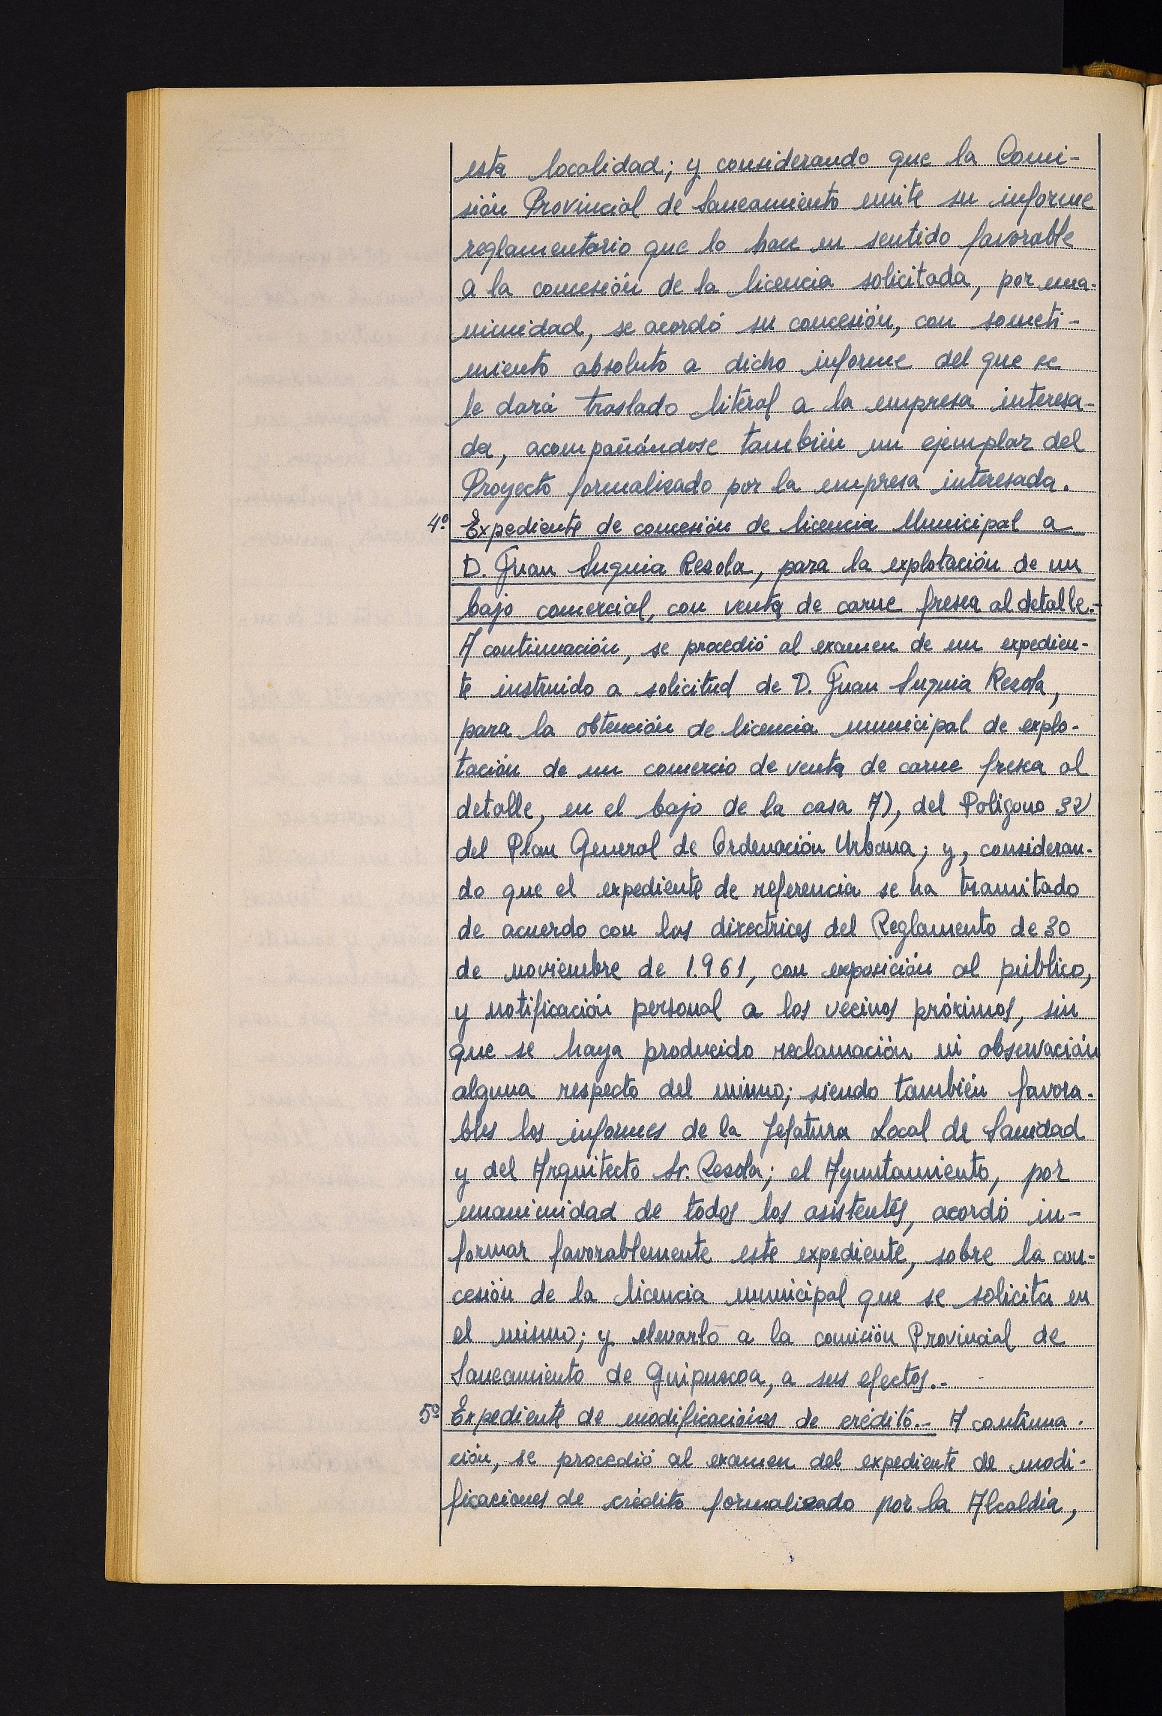 esta localidad; y considerando que la Comi-
sión Provincial de Saneamiento emite su informe
reglamentario que lo hace en sentido favorable
a la concesión de la licencia solicitada, por una-
nimidad, se acordó su concesión, con someti-
miento absoluto a dicho informe del que se
le dará traslado literal a la empresa interesa-
da, acompañándose también un ejemplar del
Proyecto formalizado por la empresa interesada.
4º Expediente de concesión de licencia Municipal a
D. Juan Suquia Rezola, para la explotación de un
bajo comercial, con venta de carne fresca al detalle.-
A continuación, se procedió al examen de un expedien-
te instruido a solicitud de D. Juan Suquia Rezola,
para la obtención de licencia municipal de explo-
tación de un comercio de venta de carne fresca al
detalle, en el bajo de la casa A), del Polígono 32
del Plan General de Ordenación Urbana; y, consideran-
do que el expediente de referencia se ha tramitado
de acuerdo con las directrices del Reglamento de 30
de noviembre de 1.961, con exposición al público,
y notificación personal a los vecinos próximos, sin
que se haya producido reclamación ni observación
alguna respecto del mismo; siendo también favora-
bles los informes de la Jefatura Local de Sanidad
y del Arquitecto Sr. Rezola; el Ayuntamiento, por
unanimidad de todos los asistentes, acordó in-
formar favorablemente este expediente, sobre la con-
cesión de la licencia municipal que se solicita en
el mismo; y elevarlo a la comisión Provincial de
Saneamiento de Guipuscoa, a sus efectos.-
5º Expediente de modificaciónes de crédito.- A continua-
ción, se procedió al examen del expediente de modi-
ficaciones de crédito formalizado por la Alcaldía,